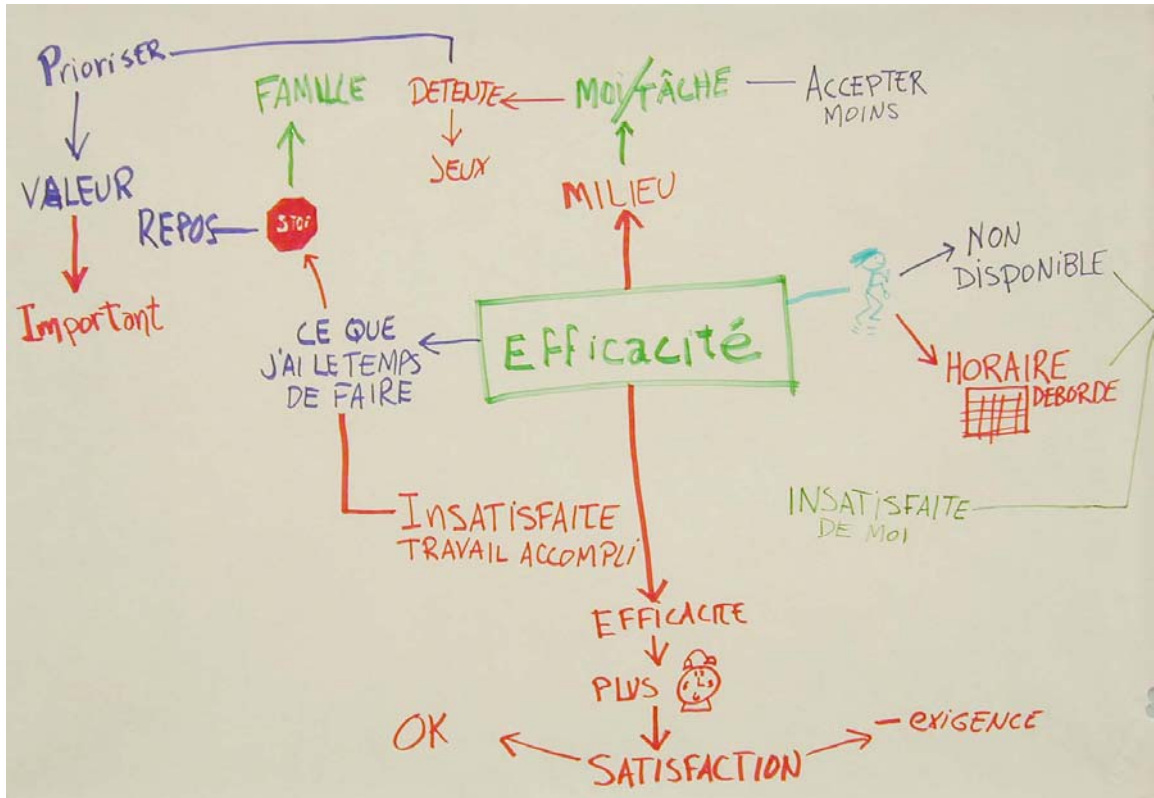 Prioriser
FAMILLE
DETENTE
MOI/TÂCHE
ACCEPTER
MOINS
JEUX
VALEUR
MILIEU
REPOS
STOP
NON
DISPONIBLE
Important
CE QUE
J'AI LE TEMPS
DE FAIRE
Efficacité
HORAIRE
DEBORDE
INSATISFAITE
TRAVAIL ACCOMPLI
INSATISFAITE
DE MOI
EFFICACITE
PLUS
OK
SATISFACTION
- exigence